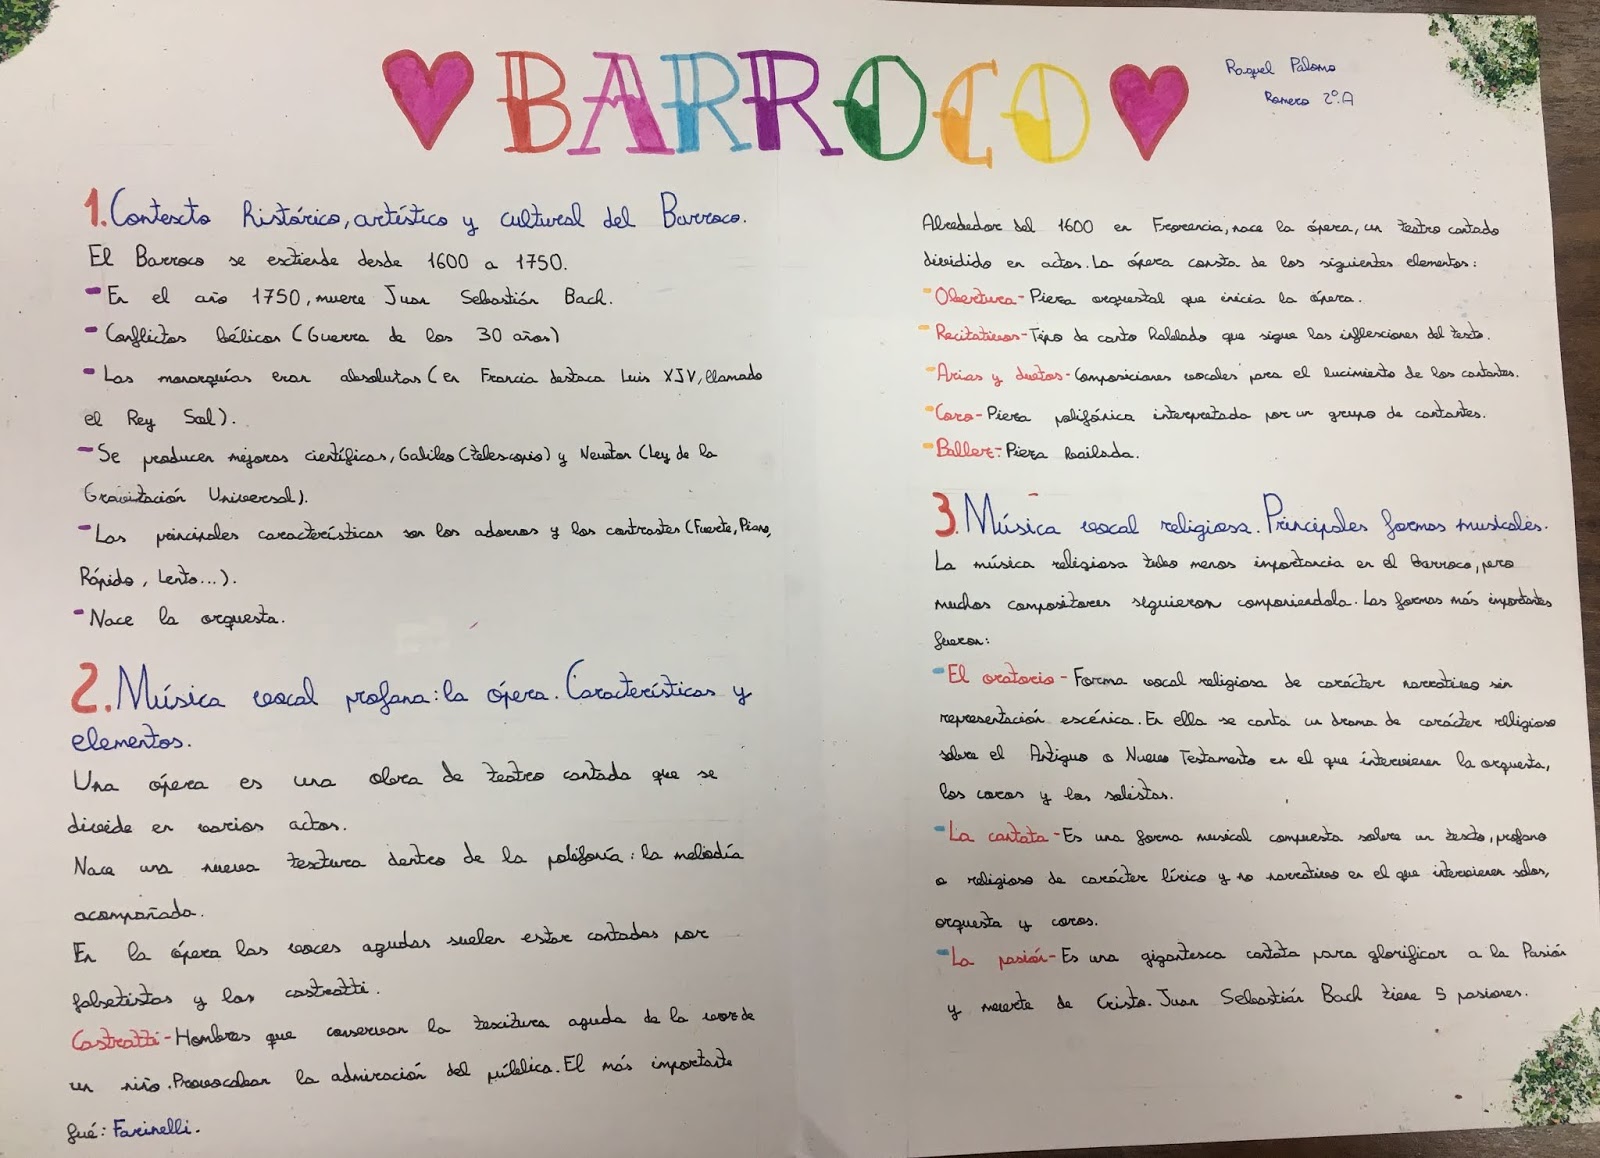 BARROCO
Raquel Palomo
Romero 2º.A
1. Contexto histórico, artístico y cultural del Barroco.
El Barroco se extiende desde 1600 a 1750.
- En el año 1750, muere Juan Sebastián Bach.
- Conflictos bélicos (Guerra de los 30 años)
- Las monarquías eran absolutas (en Francia destaca Luis XIV, llamado
el Rey Sol).
- Se producen mejoras científicas, Galileo (telescopio) y Newton (Ley de la
Gravitación Universal).
- Las principales características son los adornos y los contrastes (Fuerte, Piano,
Rápido, Lento...).
- Nace la orquesta.
2. Música vocal profana: la ópera. Características y
elementos.
Una ópera es una obra de teatro cantada que se
divide en varios actos.
Nace una nueva textura dentro de la polifonía: la melodía
acompañada.
En la ópera las voces agudas suelen estar cantadas por
falsetistas y los castratti.
Castratti - Hombres que conservan la tesitura aguda de la voz de
un niño. Provocaban la admiración del público. El más importante
fué: Farinelli.
Alrededor del 1600 en Frorencia, nace la ópera, un teatro cantado
dividido en actos. La ópera consta de los siguientes elementos:
- Obertura - Pieza orquestal que inicia la ópera.
- Recitativos - Tipo de canto hablado que sigue las inflexiones del texto.
- Arias y duetos - Composiciones vocales para el lucimiento de los cantantes.
- Coro - Pieza polifónica interpretada por un grupo de cantantes.
- Ballet - Pieza bailada.
3. Música vocal religiosa. Principales formas musicales.
La música religiosa tubo menos importancia en el Barroco, pero
muchos compositores siguieron componiendola. Las formas más importantes
fueron:
- El oratorio - Forma vocal religiosa de carácter narrativo sin
representación escénica. En ella se canta un drama de carácter religioso
sobre el Antiguo o Nuevo Testamento en el que intervienen la orquesta,
los coros y los solistas.
- La cantata - Es una forma musical compuesta sobre un texto, profano
o religioso de carácter lírico y no narrativo en el que intervienen solos,
orquesta y coros.
- La pasión - Es una gigantesca cantata para glorificar a la Pasión
y muerte de Cristo. Juan Sebastián Bach tiene 5 pasiones.